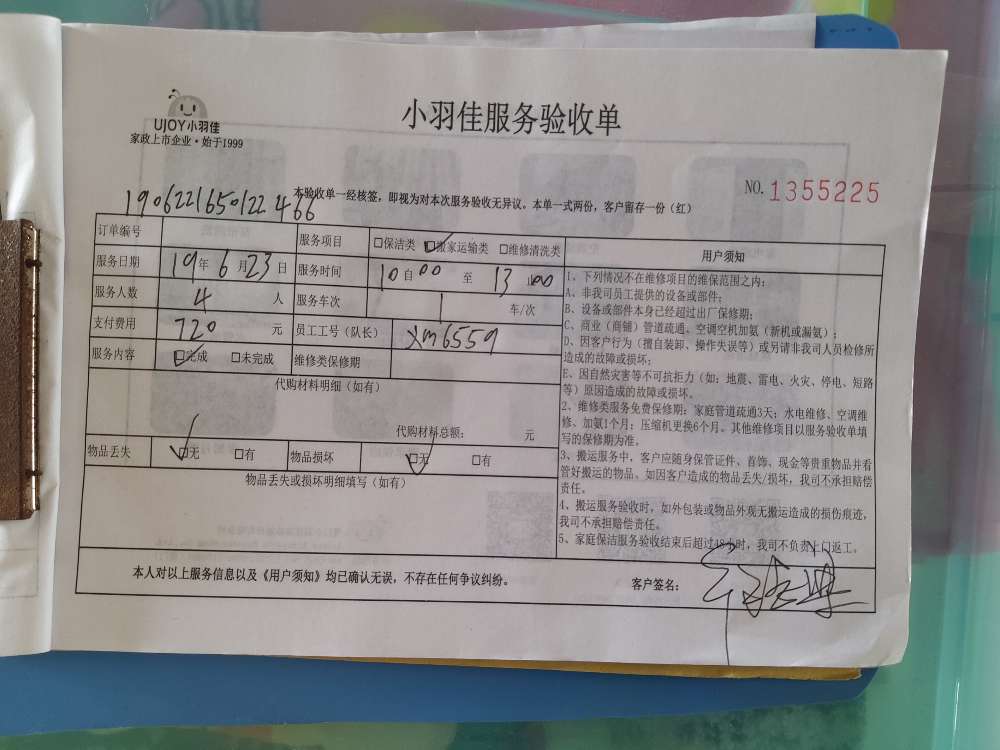 UJOY小羽佳
家政上市企业·始于1999
小羽佳服务验收单
NO. 1355225
本验收单一经核签，即视为对本次服务验收无异议。本单一式两份，客户留存一份（红）
1906221650122466
订单编号 服务项目 □保洁类 ☑搬家运输类 □维修清洗类
服务日期 19年6月23日 服务时间 10 00 至 13 00
服务人数 4 人 服务车次 1 车/次
支付费用 720 元 员工工号（队长） xm6559
服务内容 ☑完成 □未完成 维修类保修期
代购材料明细（如有）
代购材料总额： 元
物品丢失 ☑无 □有 物品损坏 ☑无 □有
物品丢失或损坏明细填写（如有）
用户须知
1、下列情况不在维修项目的维保范围之内：
A、非我司员工提供的设备或部件；
B、设备或部件本身已经超过出厂保修期；
C、商业（商铺）管道疏通、空调空机加氨（新机或漏氨）；
D、因客户行为（擅自装卸、操作失误等）或另请非我司人员检修所
造成的故障或损坏；
E、因自然灾害等不可抗拒力（如：地震、雷电、火灾、停电、短路
等）原因造成的故障或损坏。
2、维修类服务免费保修期：家庭管道疏通3天；水电维修、空调维
修、加氨1个月；压缩机更换6个月。其他维修项目以服务验收单填
写的保修期为准。
3、搬运服务中，客户应随身保管证件、首饰、现金等贵重物品并看
管好搬运的物品。如因客户造成的物品丢失/损坏，我司不承担赔偿
责任。
4、搬运服务验收时，如外包装或物品外观无搬运造成的损伤痕迹，
我司不承担赔偿责任。
5、家庭保洁服务验收结束后超过48小时，我司不负责上门返工。
本人对以上服务信息以及《用户须知》均已确认无误，不存在任何争议纠纷。 客户签名：